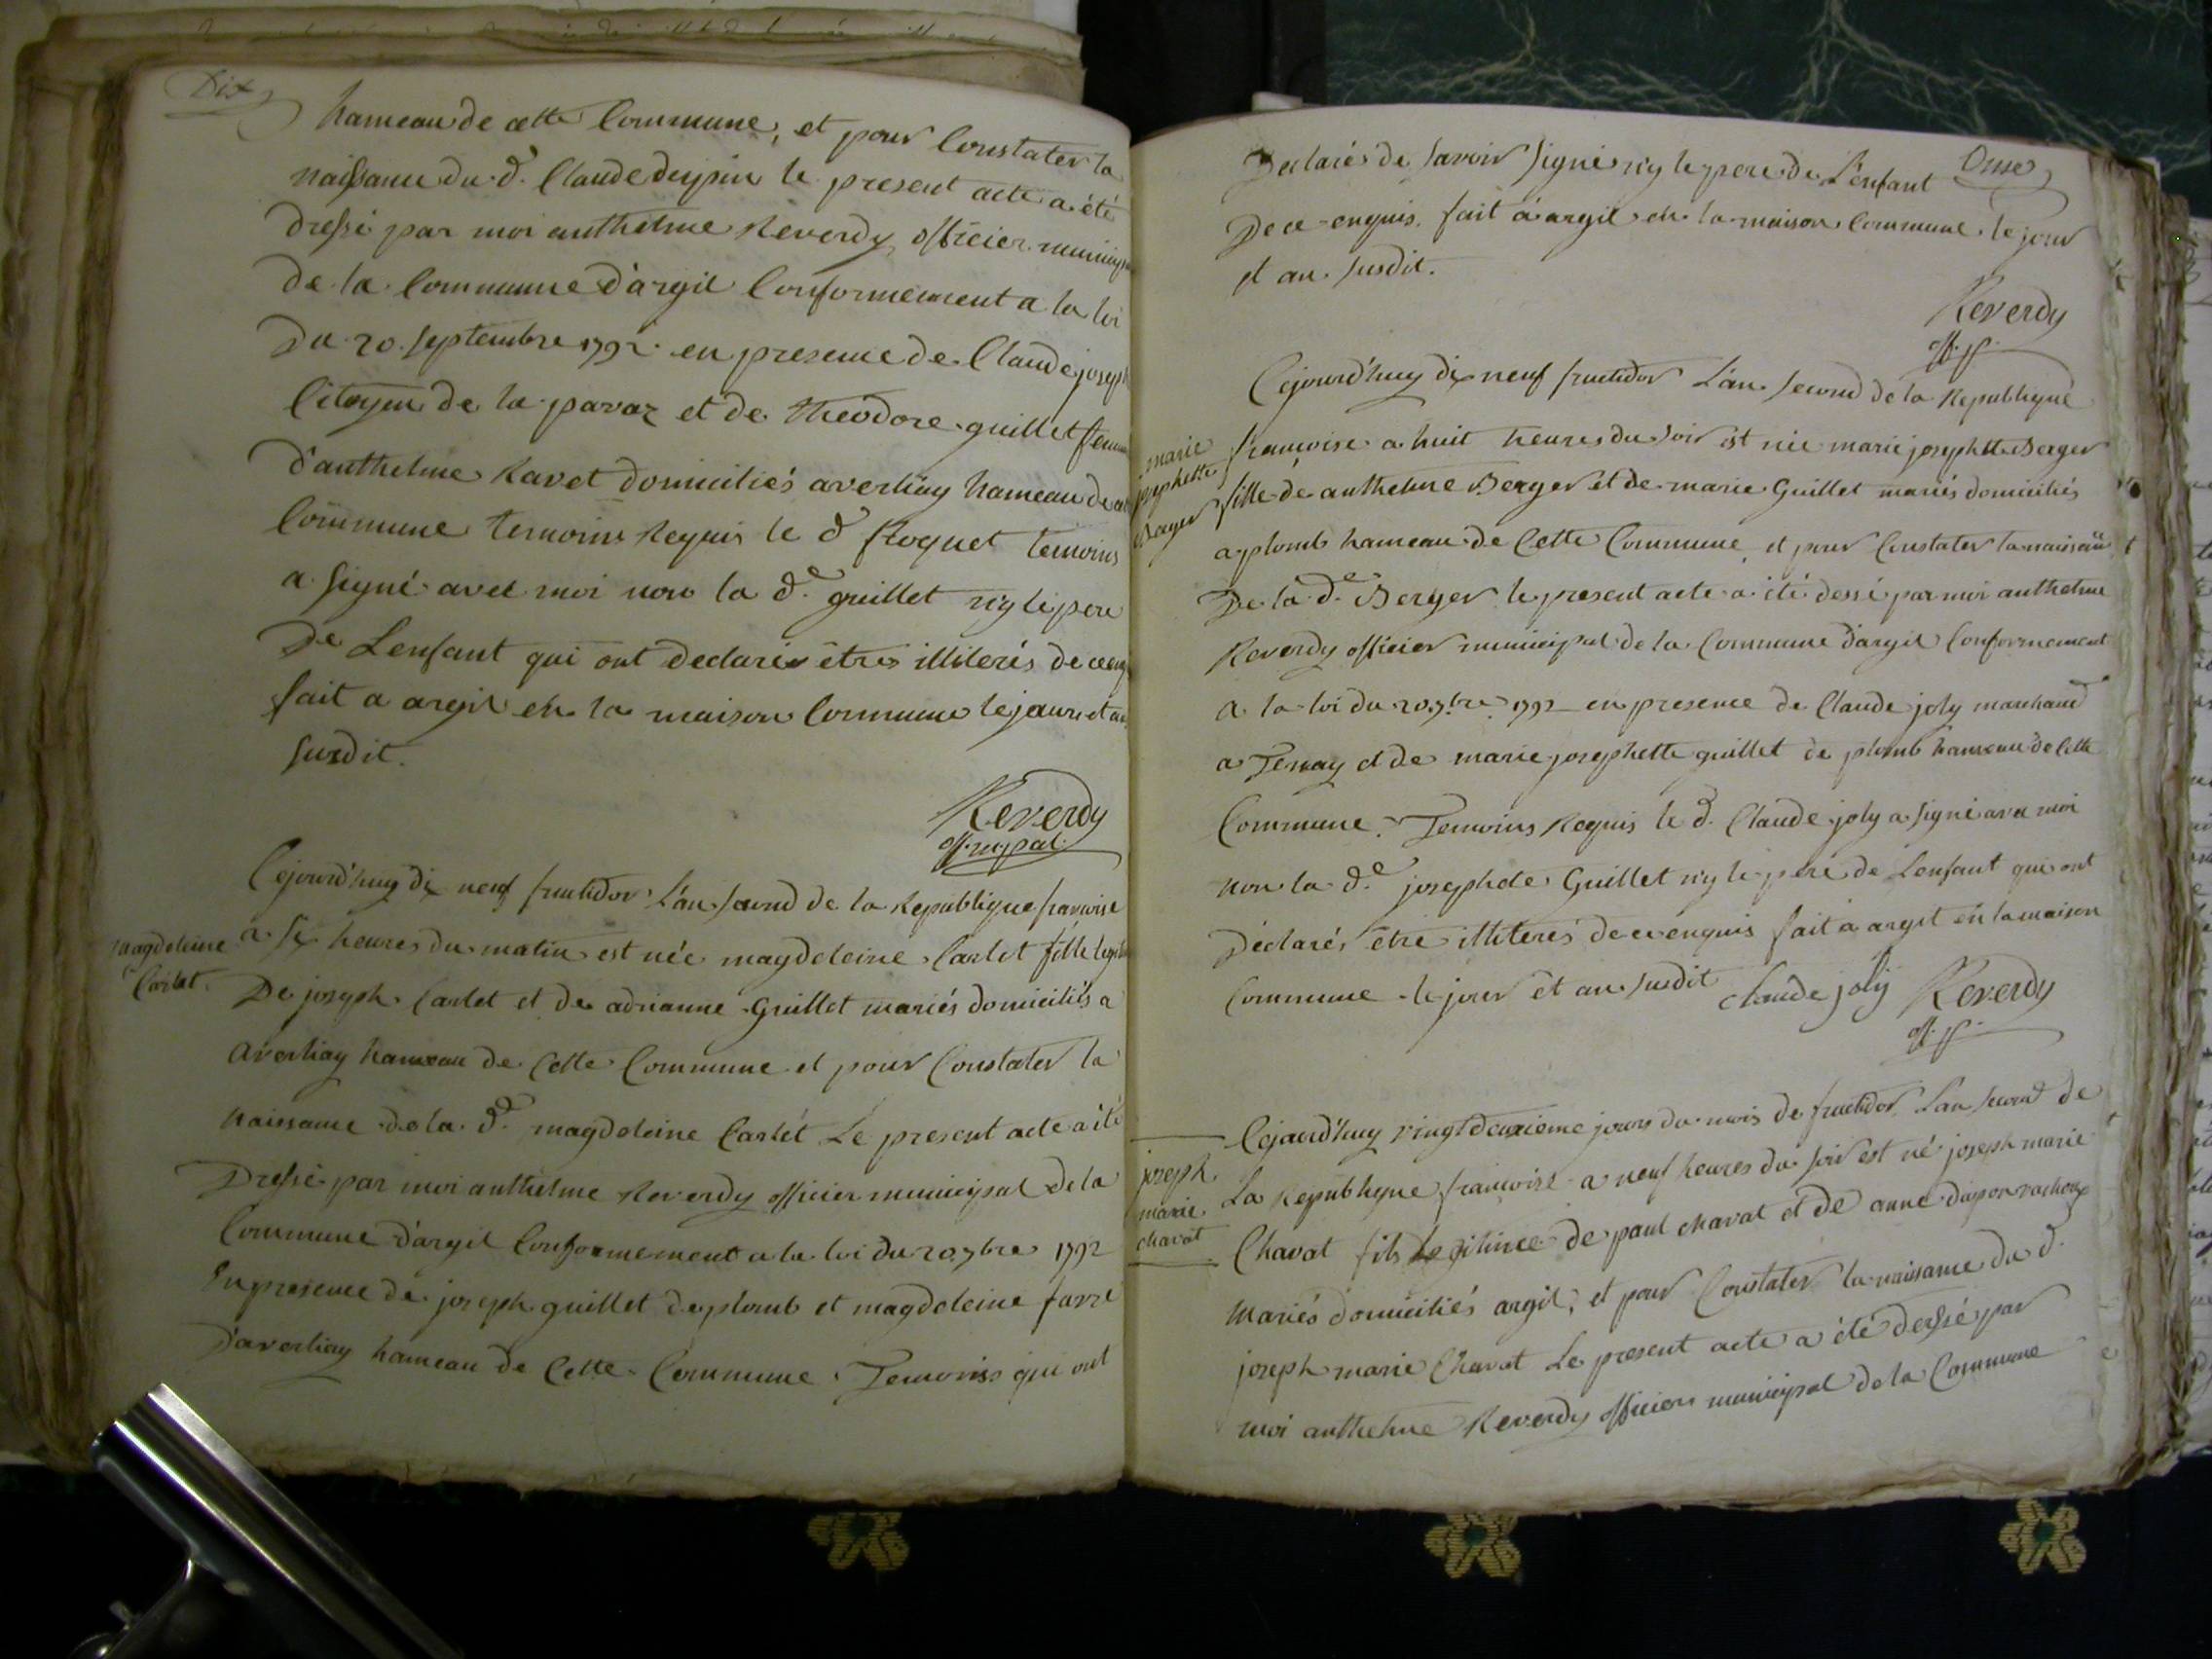 Dix
hameau de cette Commune, et pour Constater la
naissance du d. Claude dujpin le present acte a été
dressé par moi anthelme Reverdy officier municip
de la Commune d'argil Conformement a la loi
Du 20 septembre 1792 en presence de Claude joseph
Citoyen de la pavaz et de theodore guillet femme
d'anthelme Ravet domiciliés averliay hameau de
Commune temoins Requis le d froquet temoins
a signé avec moi non la d.e guillet n'y le pere
De Lenfant qui ont declarés êtres illiterés de ce enq
fait a argil en la maison Commune le jour et an
susdit.
Reverdy
off. mupal.
magdeleine
Carlet.
Cejourd'huy dix neuf fructidor L'an second de la Republique francoise
a six heures du matin est née magdeleine Carlet fille legit
De joseph Carlet et de adrianne Guillet mariés domiciliés a
averliay hameau de Cette Commune et pour Constater la
naissance de la d.e magdeleine Carlet Le present acte a été
Dressé par moi anthelme Reverdy officier municipal de la
Commune d'argil Conformement a la loi du 20 7bre 1792
En presence de joseph guillet de plomb et magdeleine favre
D'averliay hameau de Cette Commune Temoins qui ont
Onse
Declarés de savoir signé n'y le pere de L'enfant
De ce enquis. fait a argil en la maison Commune le jour
et an susdit.
Reverdy
off. p.
marie
josephette
Berger
Cejourd'huy dix neuf fructidor L'an second de la Republique
francoise a huit heures du soir est née marie josephette Berger
fille de anthelme Berger et de marie Guillet mariés domiciliés
a plomb hameau de Cette Commune, et pour Constater la naissan
De la d.e Berger le present acte a été dessé par moi anthelme
Reverdy officier municipal de la Commune d'argil Conformement
a la loi du 20 7bre 1792 en presence de Claude joly marchand
a Tenay et de marie josephette guillet de plomb hameau de Cette
Commune. Temoins Requis le d. Claude joly a signé avec moi
non la d.e josephete Guillet n'y le peré de Lenfant qui ont
Déclarés être illiterés de ce enquis fait a argil en la maison
Commune le jour et an susdit Claude joly Reverdy
off. p.
joseph
marie
chavat
Cejourd'huy vingt deuxieme jours du mois de fructidor Lan second de
La Republique francoise a neuf heures du soir est né joseph marie
Chavat fils legitime de paul chavat et de anne
Mariés domiciliés argil, et pour Constater la naissance du d.
joseph marie Chavat Le present acte a été dessé par
moi anthelme Reverdy officiers municipal de la Commune